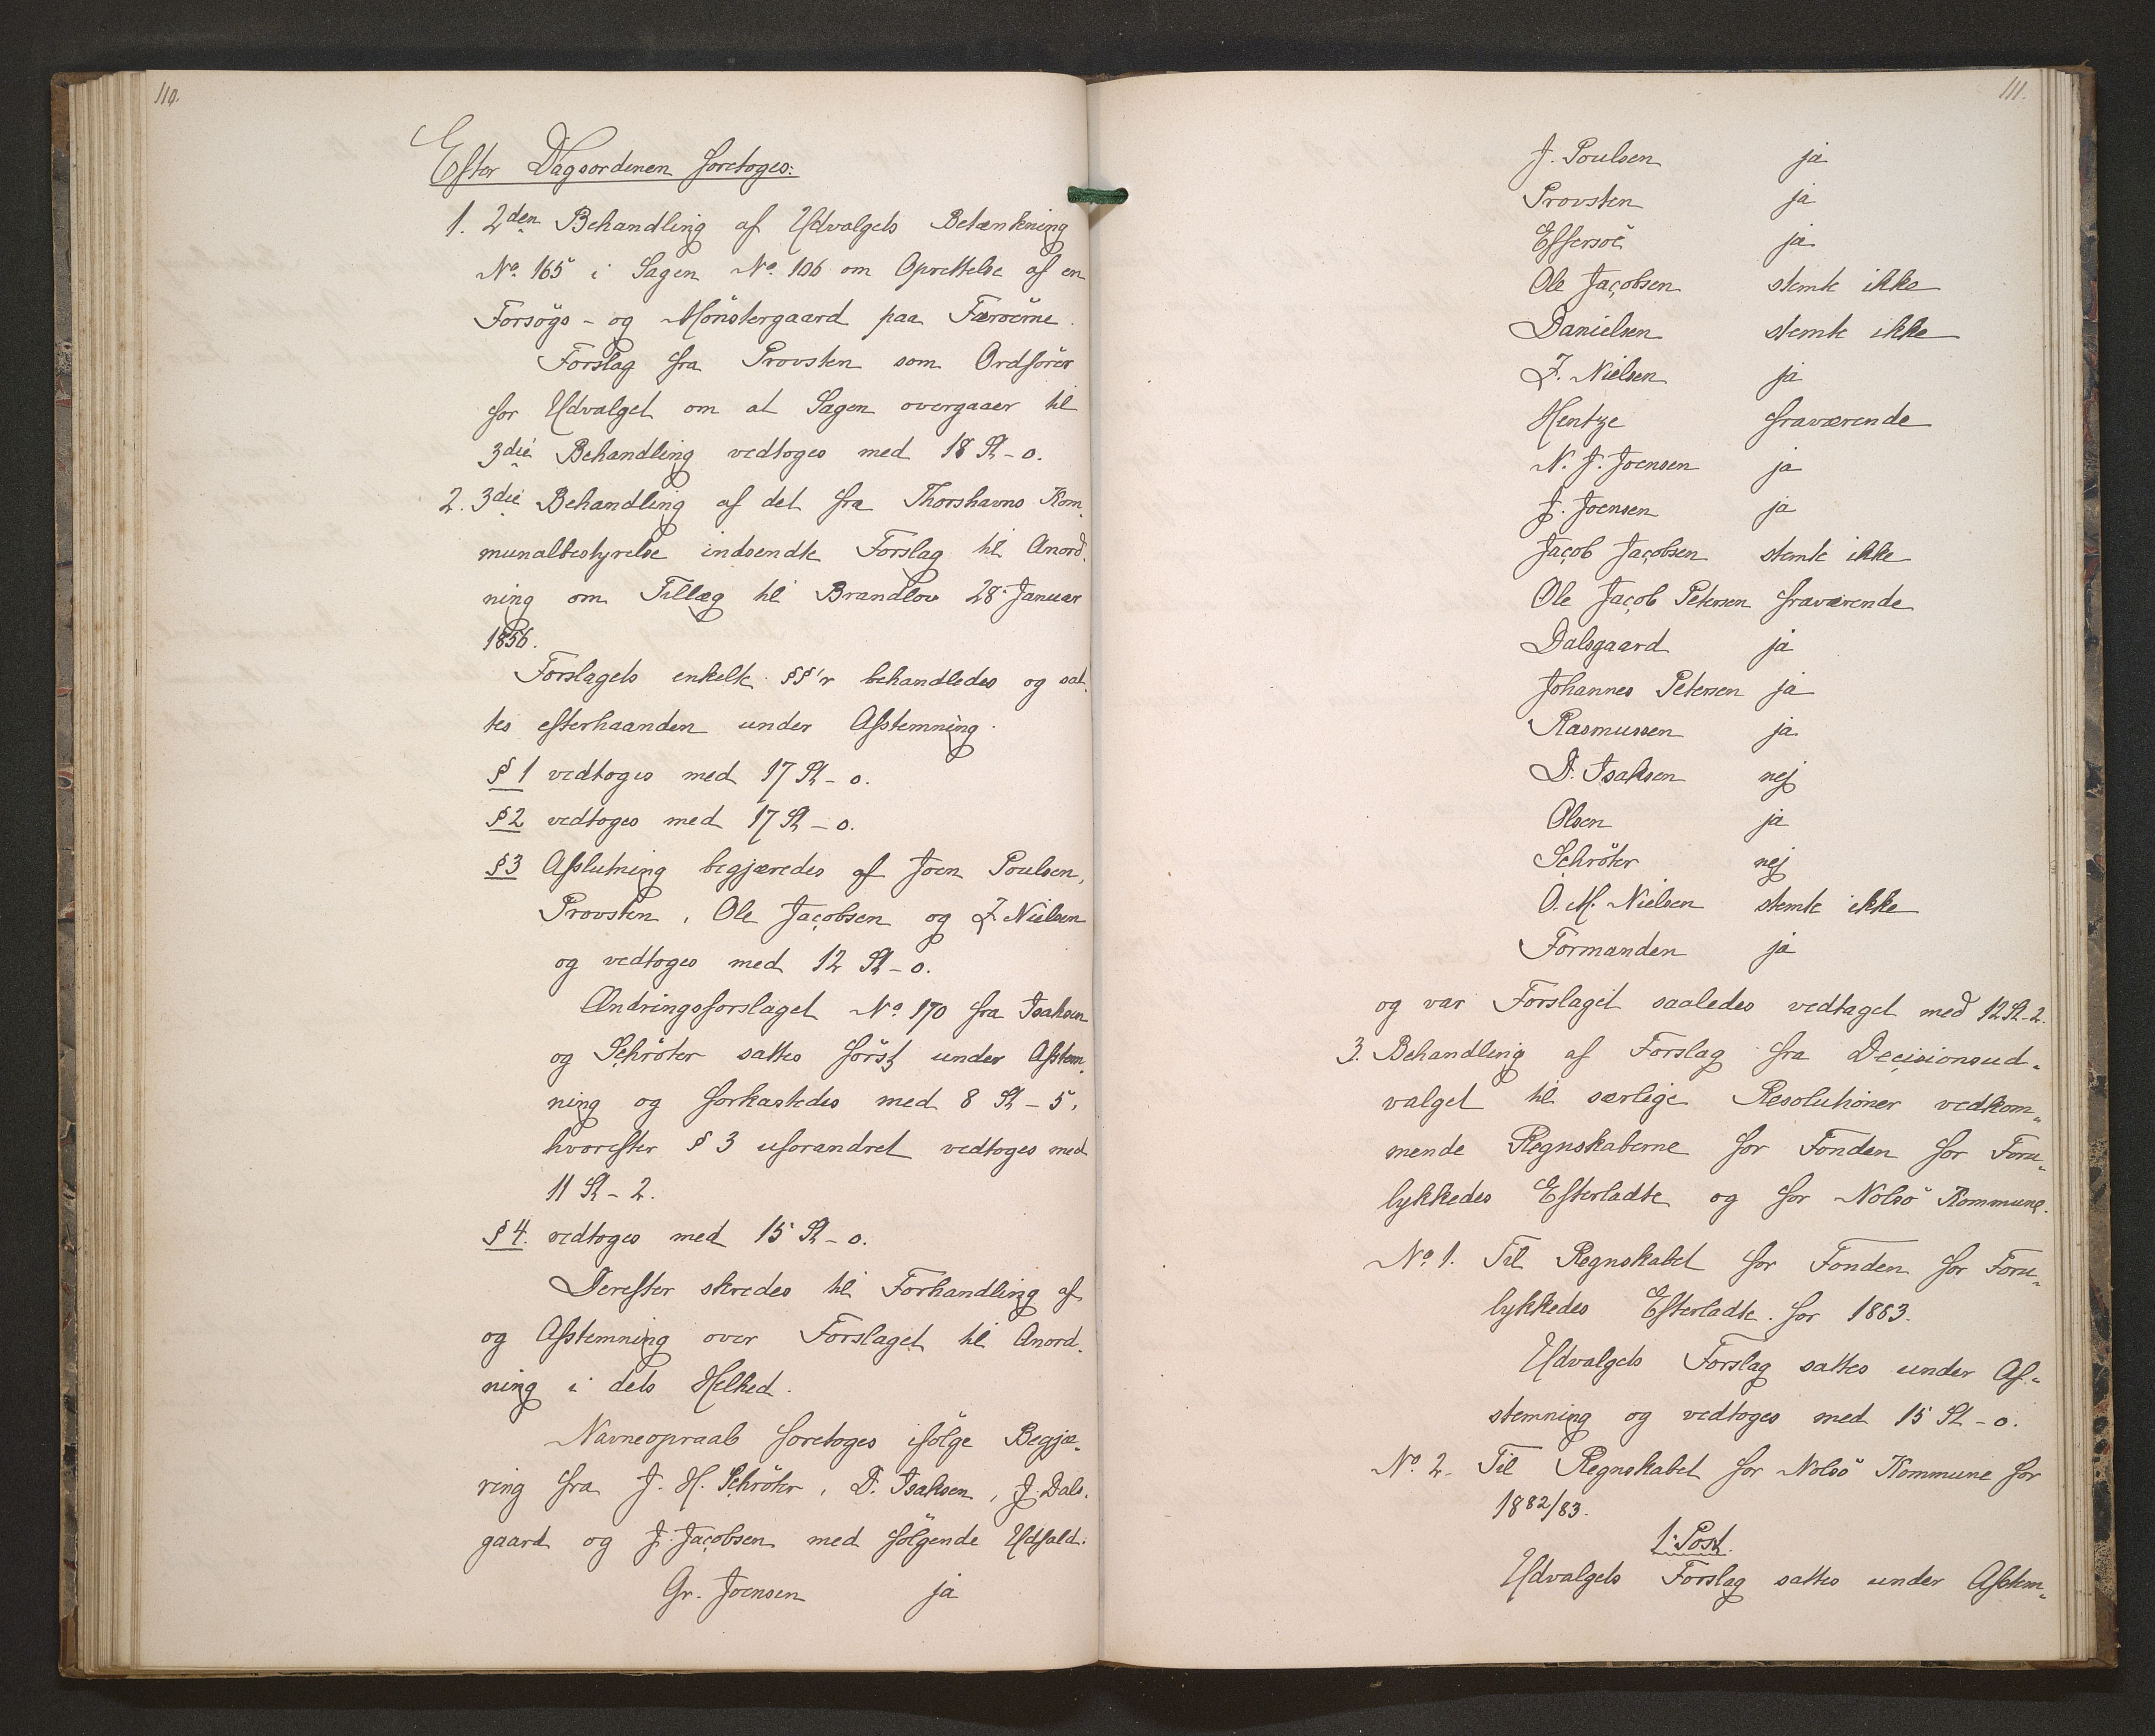 110.
Efter Dagsordenen foretoges:
1. 2den Behandling af Udvalgets Betænkning
No. 165 i Sagen No. 106 om Oprettelse af en
Forsögs- og Mönstergaard paa Færöerne.
Forslag fra Provsten som Ordförer
for Udvalget om at Sagen overgaaer til
3die Behandling vedtoges med 18 St - 0.
2. 3die Behandling af det fra Thorshavns Kom-
munalbestyrelse indsendte Forslag til Anord-
ning om Tillæg til Brandlov 28. Januar
1856.
Forslagets enkelte §§'r behandledes og sat-
tes efterhaanden under Afstemning.
§ 1 vedtoges med 17 St - 0.
§ 2 vedtoges med 17 St - 0.
§ 3 Afslutning begjæredes af Joen Poulsen,
Provsten, Ole Jacobsen og Z. Nielsen
og vedtoges med 12 St - 0.
Ændringsforslaget No. 170 fra Isaksen
og Schröter sattes först under Afstem-
ning og forkastedes med 8 St - 5,
hvorefter § 3 uforandret vedtoges med
11 St - 2.
§ 4. vedtoges med 15 St - 0.
Derefter skredes til Forhandling af
og Afstemning over Forslaget til Anord-
ning i dets Helhed.
Navneopraab foretoges ifölge Begjæ-
ring fra J. H. Schröter, D. Isaksen, J. Dals-
gaard og J. Jacobsen med fölgende Udfald:
Gr. Joensen ja
111.
J. Poulsen ja
Provsten ja
Effersöe ja
Ole Jacobsen stemte ikke
Danielsen stemte ikke
Z. Nielsen ja
Hentze fraværende
N. J. Joensen ja
J. Joensen ja
Jacob Jacobsen stemte ikke
Ole Jacob Petersen fraværende
Dalsgaard ja
Johannes Petersen ja
Rasmussen ja
D. Isaksen nej
Olsen ja
Schröter nej
O. M. Nielsen stemte ikke
Formanden ja
og var Forslaget saaledes vedtaget med 12 St - 2.
3. Behandling af Forslag fra Decisionsud-
valget til særlige Resolutioner vedkom-
mende Regnskaberne for Fonden for Foru-
lykkedes Efterladte og for Nolsö Kommune.
No. 1. Til Regnskabet for Fonden for Foru-
lykkedes Efterladte for 1883.
Udvalgets Forslag sattes under Af-
stemning og vedtoges med 15 St - 0.
No. 2. Til Regnskabet for Nolsö Kommune for
1882/83.
1. Post.
Udvalgets Forslag sattes under Afstem-